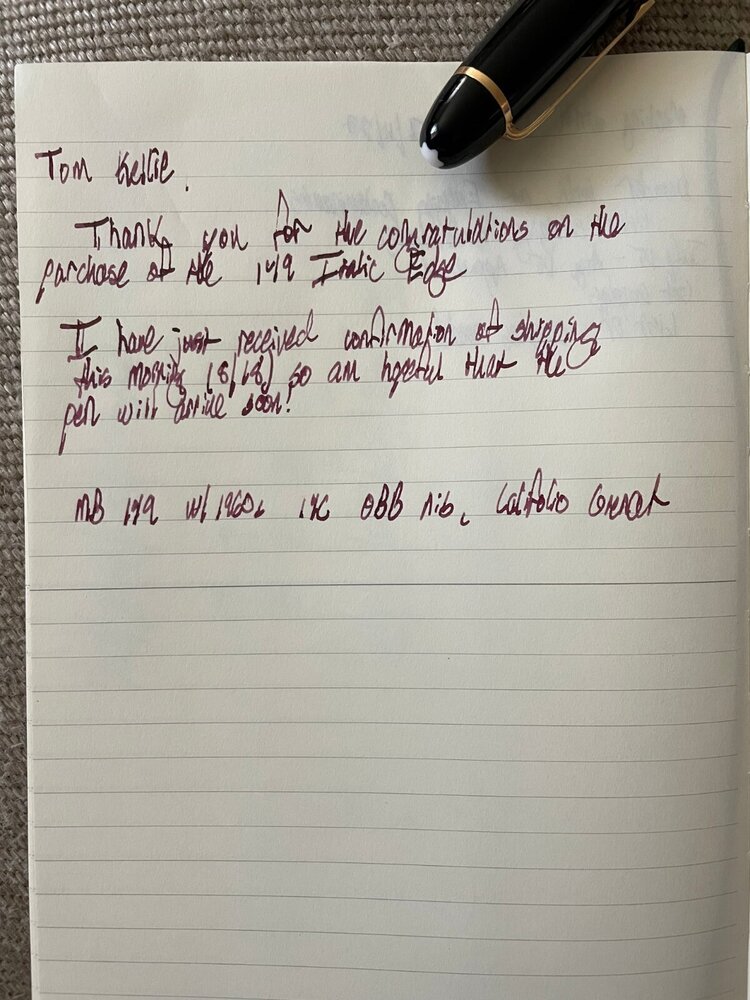 Tom Kellie,
Thank you for the congratulations on the
purchase of the 149 Italic Edge
I have just received confirmation of shipping
this morning (8/18) so am hopeful that the
pen will arrive soon!
MB 149 w/ 1960s 14C OBB nib,